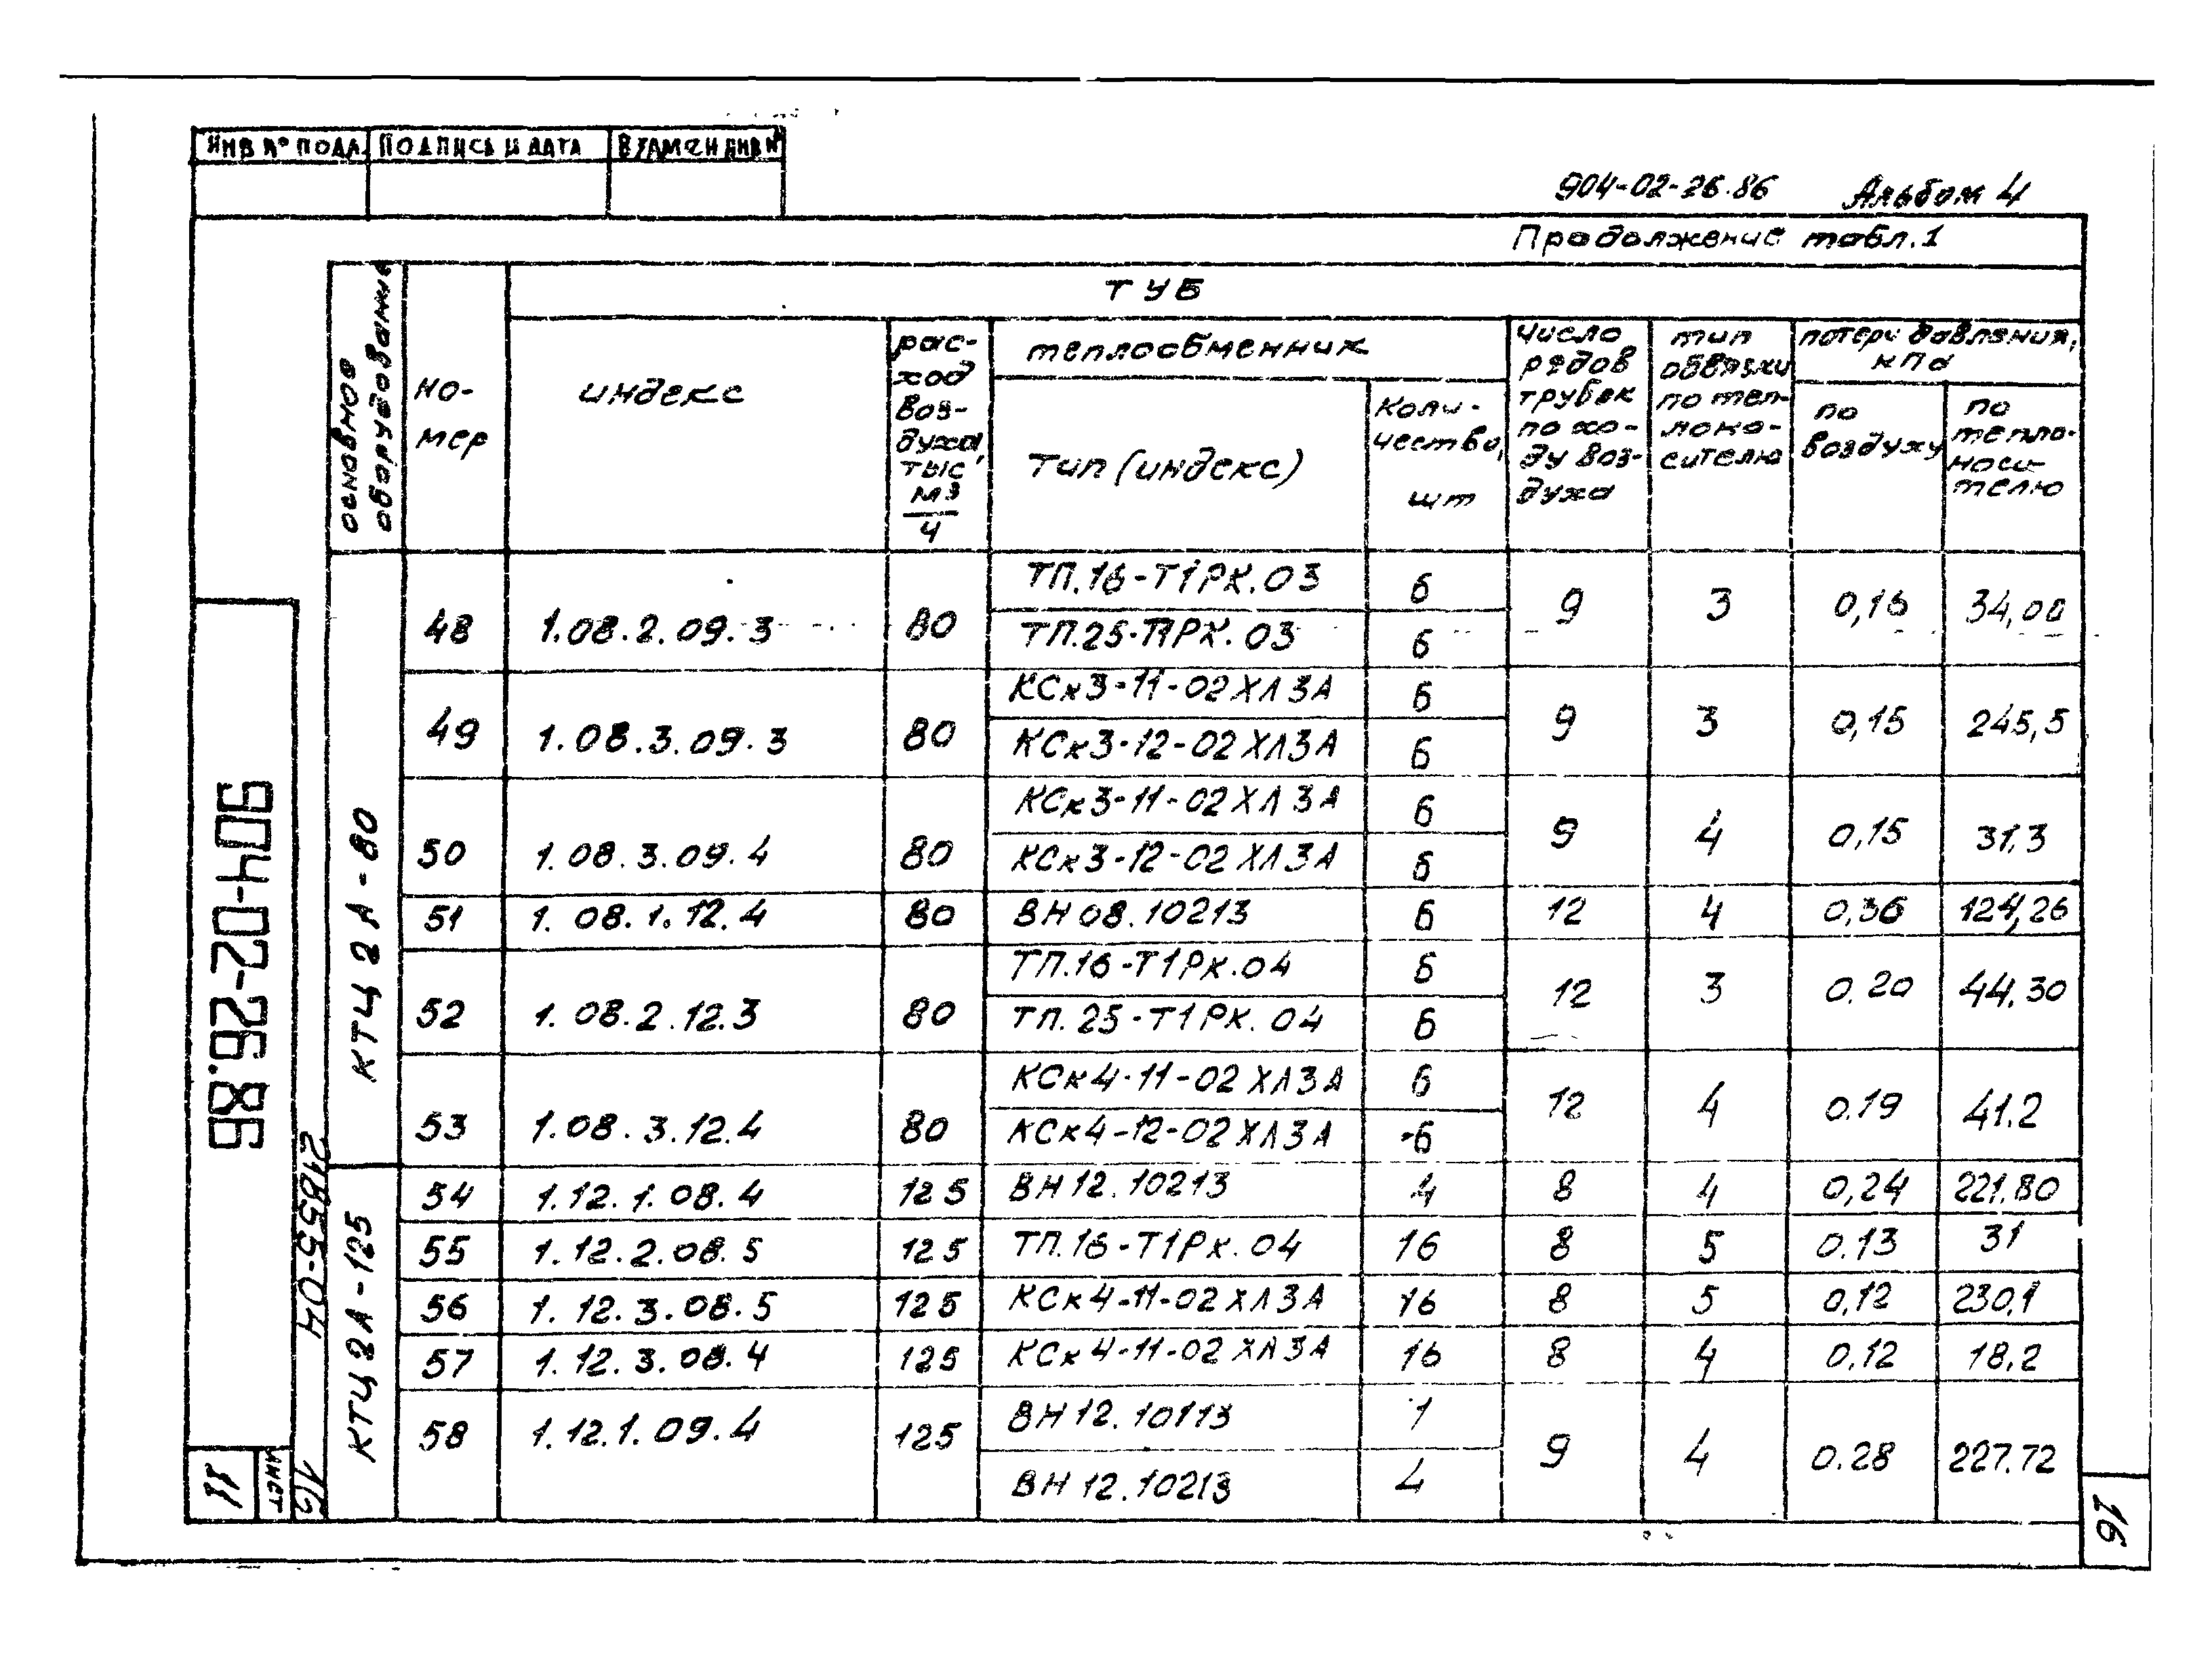 ИНВ № ПОДЛ. ПОДПИСЬ И ДАТА ВЗАМЕН ИНВ №
904-02-26.86 Альбом 4
Продолжение табл.1
основное оборудование
но-
мер
ТУБ
индекс
рас-
ход
воз-
духа,
тыс
м3
ч
теплообменник
тип (индекс)
коли-
чество,
шт
число
рядов
трубок
по хо-
ду воз-
духа
тип
обвязки
по теп-
лоно-
сителю
потери давления,
кПа
по
воздуху
по
тепло-
носи-
телю
КТЦ2А-80
48 1.08.2.09.3 80 ТП.16-Т1РК.03 6 9 3 0,16 34,00
ТП.25-Т1РК.03 6
49 1.08.3.09.3 80 КСк3-11-02ХЛ3А 6 9 3 0,15 245,5
КСк3-12-02ХЛ3А 6
50 1.08.3.09.4 80 КСк3-11-02ХЛ3А 6 9 4 0,15 31,3
КСк3-12-02ХЛ3А 6
51 1.08.1.12.4 80 ВН08.10213 6 12 4 0,36 124,26
52 1.08.2.12.3 80 ТП.16-Т1Рк.04 6 12 3 0.20 44.30
ТП.25-Т1РК.04 6
53 1.08.3.12.4 80 КСк4-11-02ХЛ3А 6 12 4 0.19 41.2
КСк4-12-02ХЛ3А 6
КТЦ2А-125
54 1.12.1.08.4 125 ВН12.10213 4 8 4 0,24 221.80
55 1.12.2.08.5 125 ТП.16-Т1Рк.04 16 8 5 0.13 31
56 1.12.3.08.5 125 КСк4-11-02ХЛ3А 16 8 5 0,12 230,1
57 1.12.3.08.4 125 КСк4-11-02ХЛ3А 16 8 4 0,12 18,2
58 1.12.1.09.4 125 ВН12.10113 1 9 4 0.28 227.72
ВН12.10213 4
904-02-26.86
21855-04 16
ЛИСТ
11
16